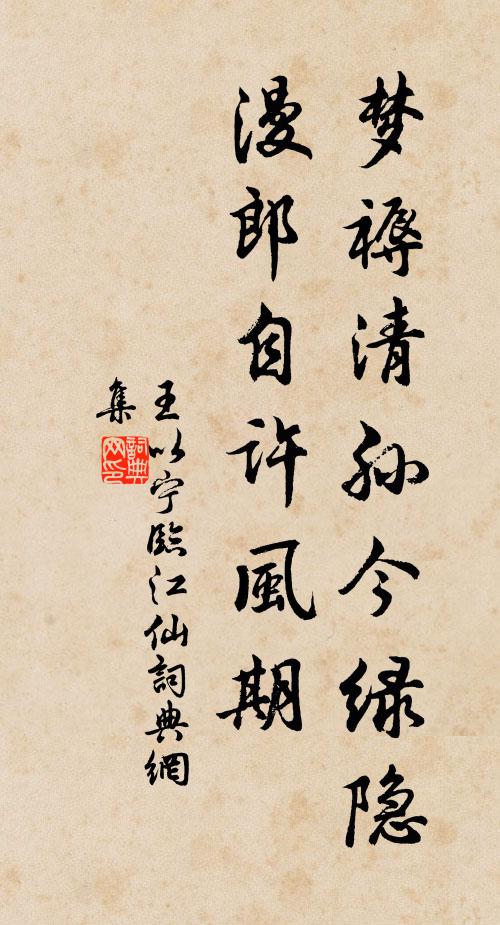 梦褥清孙今绿隐
漫郎自许風期
王以宁臨江仙詞典網
集
詞典
网印